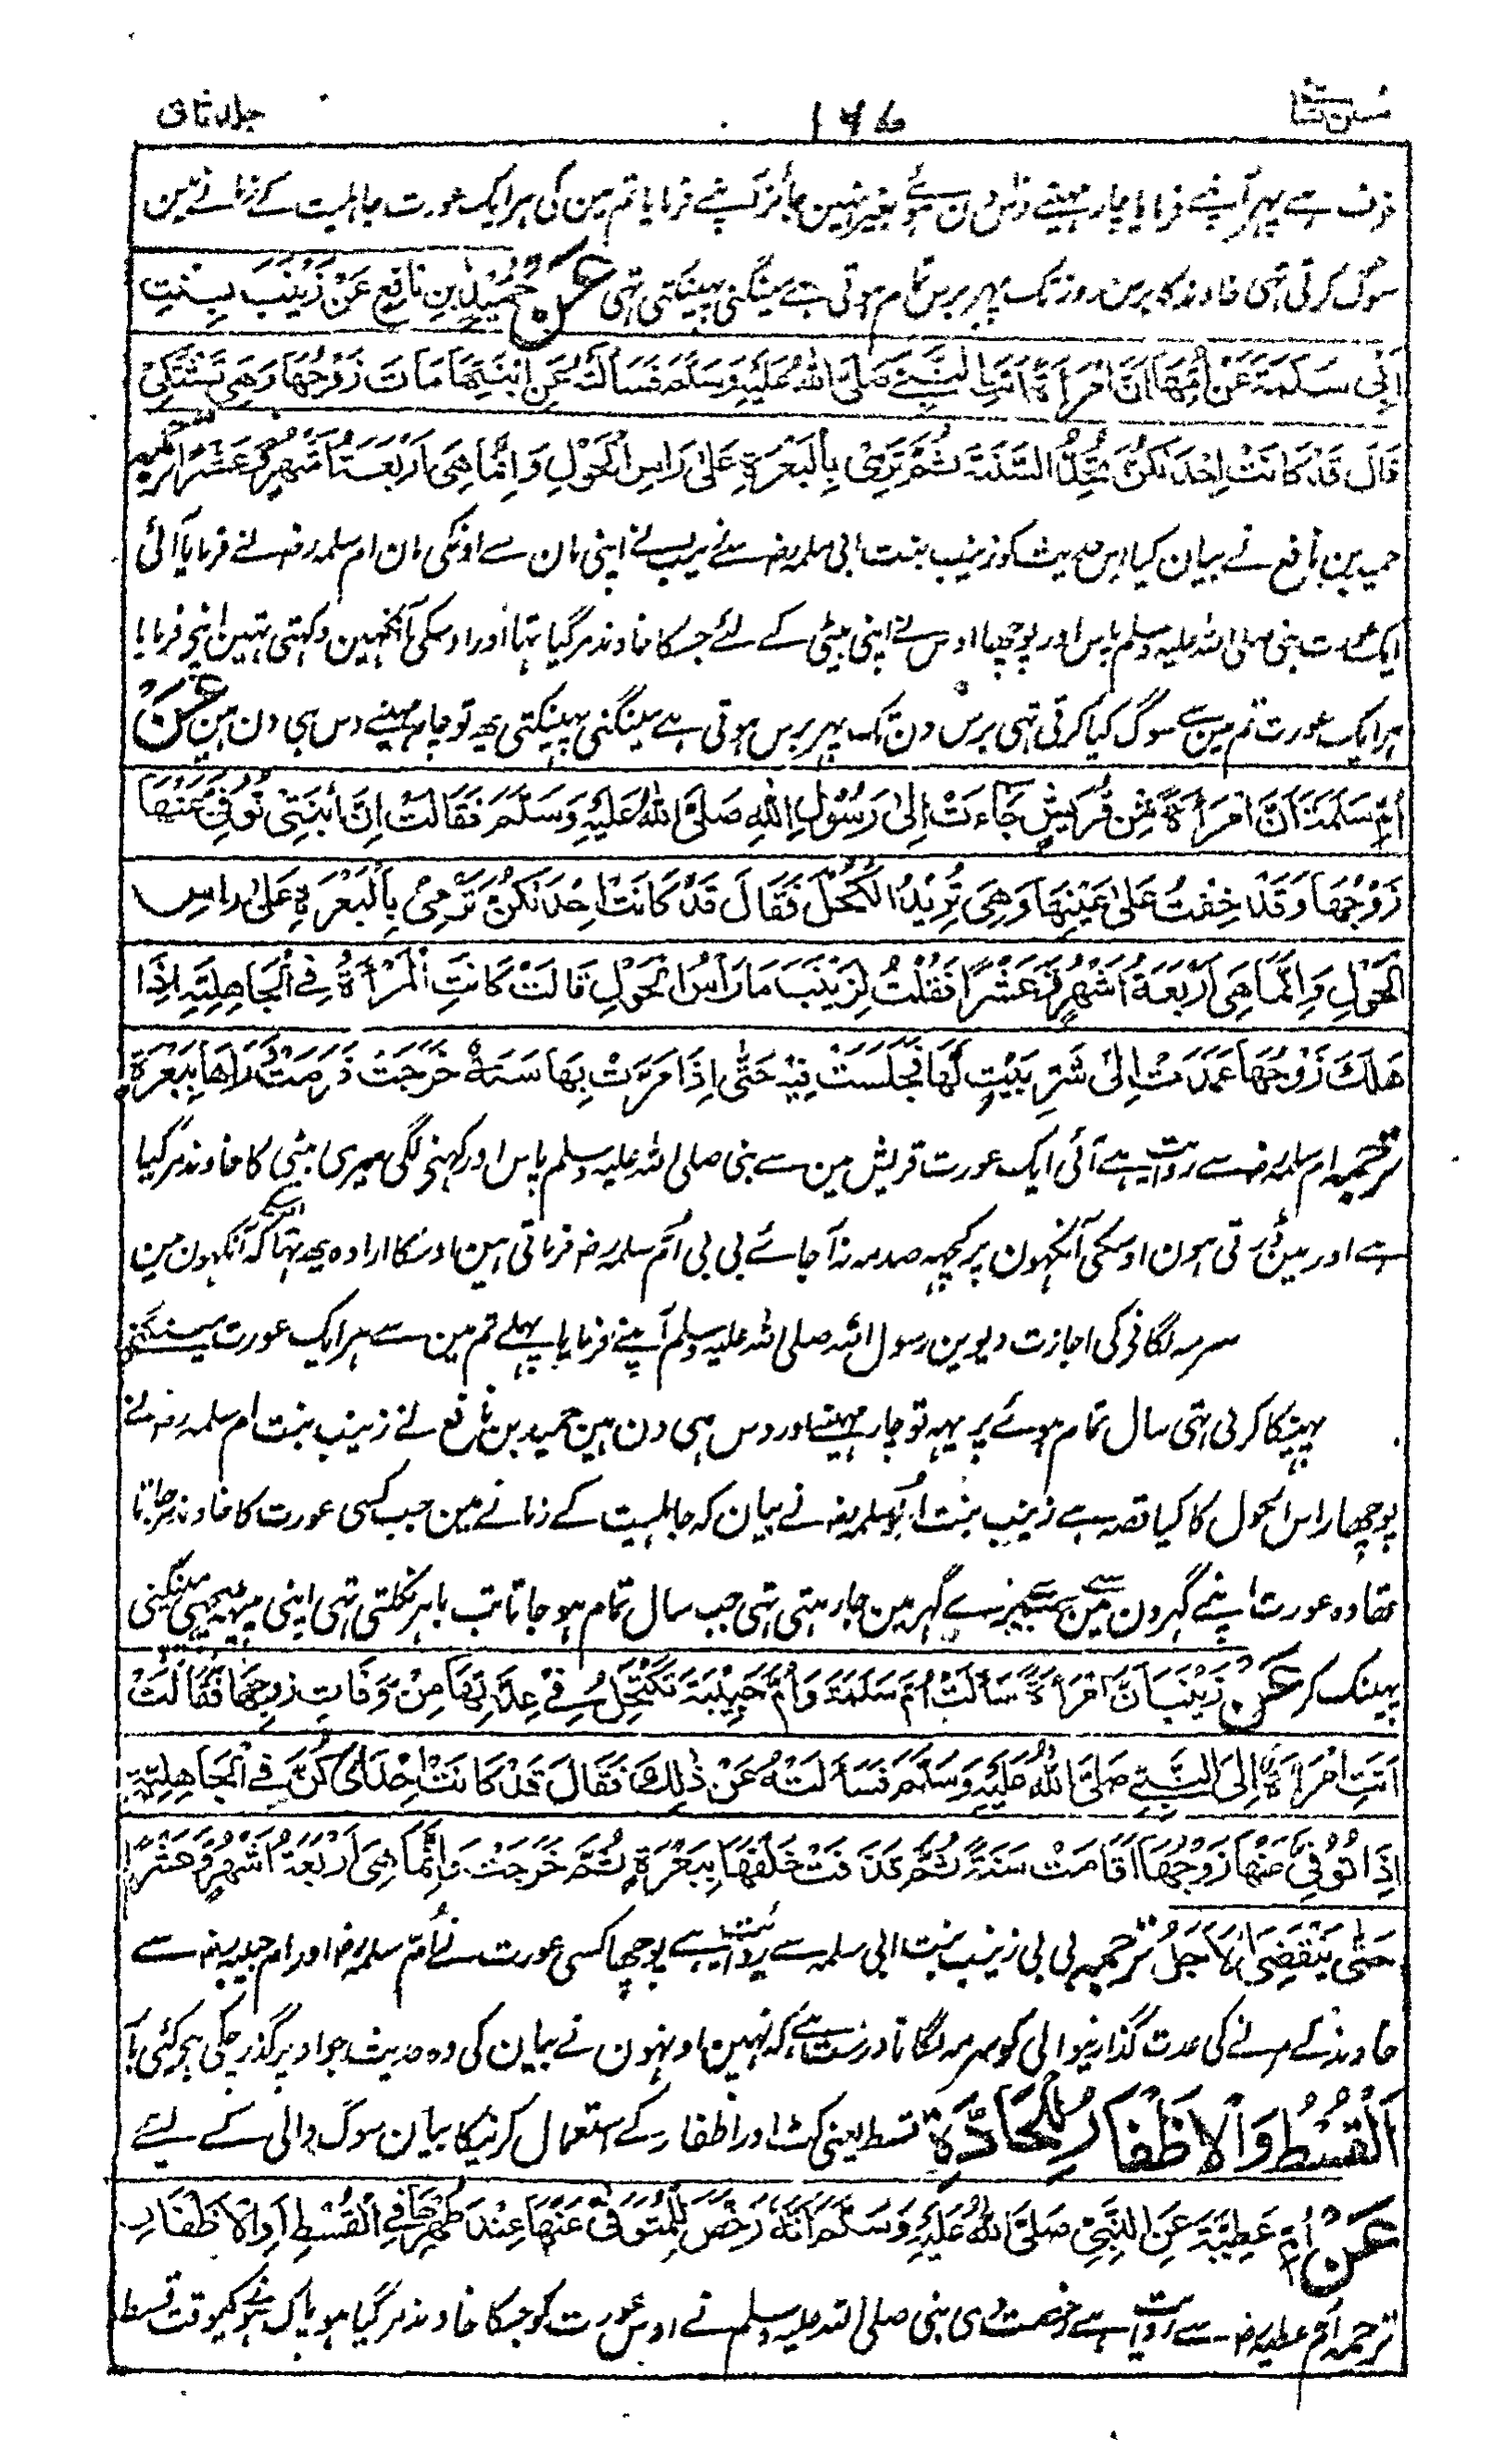 سنن نسائی ۱۷۶ جلد ثانی
خوف ہے پہر آپنے فرمایا چار مہینے دس دن ہوئے بغیر نہین جائز آپنے فرمایا تم مین کی ہر ایک عورت جاہلیت کے زمانے مین
سوگ کرتی تہی خاوند کا برس روز تک پہر برس تمام ہوتی ہے مینگنی پہینکتی تہی عَنْ حُمَيْدِ بْنِ نَافِعٍ عَنْ زَيْنَبَ بِنْتِ
اَبِي سَلَمَةَ عَنْ اُمِّهَا اَنَّ امْرَأَةً اَتَتِ النَّبِيَّ صَلَّى اللهُ عَلَيْهِ وَسَلَّمَ فَسَأَلَتْهُ عَنِ ابْنَتِهَا مَاتَ زَوْجُهَا وَهِيَ تَشْتَكِيْ
قَالَ قَدْ كَانَتْ اِحْدَىكُنَّ تُحِدُّ السَّنَةَ ثُمَّ تَرْمِيْ بِالْبَعْرَةِ عَلٰى رَاسِ الْحَوْلِ وَاِنَّمَا هِيَ اَرْبَعَةُ اَشْهُرٍ وَّعَشْرًا ترجمہ
حمید بن نافع نے بیان کیا اس حدیث کو زینب بنت ابی سلمہ رضہ سے زینب نے اپنی مان سے اونکی مان ام سلمہ رضہ نے فرمایا آئی
ایک عورت نبی صلی اللہ علیہ وسلم پاس اور پوچھا اوس نے اپنی بیٹی کے لئے جسکا خاوند مر گیا تہا اور اوسکی آنکہین دکہتی تہین آپنے فرمایا
ہر ایک عورت تم مین سے سوگ کیا کرتی تہی برس دن تک پہر برس ہوتی ہے مینگنی پہینکتی یہ تو چار مہینے دس ہی دن ہین عَنْ
اُمِّ سَلَمَةَ اَنَّ امْرَأَةً مِّنْ قُرَيْشٍ جَاءَتْ اِلٰى رَسُوْلِ اللهِ صَلَّى اللهُ عَلَيْهِ وَسَلَّمَ فَقَالَتْ اِنَّ ابْنَتِيْ تُوُفِّيَ عَنْهَا
زَوْجُهَا وَقَدْ خِفْتُ عَلٰى عَيْنِهَا وَهِيَ تُرِيْدُ الْكُحْلَ فَقَالَ قَدْ كَانَتْ اِحْدَىكُنَّ تَرْمِيْ بِالْبَعْرَةِ عَلٰى رَاسِ
الْحَوْلِ وَاِنَّمَا هِيَ اَرْبَعَةُ اَشْهُرٍ وَّعَشْرًا فَقُلْتُ لِزَيْنَبَ مَا رَأْسُ الْحَوْلِ قَالَتْ كَانَتِ الْمَرْأَةُ فِي الْجَاهِلِيَّةِ اِذَا
هَلَكَ زَوْجُهَا عَمَدَتْ اِلٰى شَرِّ بَيْتٍ لَّهَا فَجَلَسَتْ فِيْهِ حَتّٰى اِذَا مَرَّتْ بِهَا سَنَةٌ خَرَجَتْ فَرَمَتْ وَرَاءَهَا بِبَعْرَةٍ
ترجمہ ام سلمہ رضہ سے روایت ہے آئی ایک عورت قریش مین سے نبی صلی اللہ علیہ وسلم پاس اور کہنے لگی میری بیٹی کا خاوند مر گیا
ہے اور مین ڈرتی ہون اوسکی آنکہون پر کچہہ صدمہ نہ آجائے بی بی ام سلمہ رضہ فرماتی ہین اوسکا ارادہ یہ تہا کہ اسکے آنکہون مین
سرمہ لگانے کی اجازت دیوین رسول اللہ صلی اللہ علیہ وسلم آپنے فرمایا پہلے تم مین سے ہر ایک عورت مینگنی
پہینکا کرتی تہی سال تمام ہوئے پر یہہ تو چار مہینے اور دس ہی دن ہین حمید بن نافع نے زینب بنت ام سلمہ رضہ نے
پوچھا راس الحول کا کیا قصہ ہے زینب بنت ابو سلمہ رضہ نے بیان کہ جاہلیت کے زمانے مین جب کسی عورت کا خاوند مر جاتا
تھا وہ عورت اپنے گہرون مین سے گہر مین جا رہتی تہی جب سال تمام ہو جاتا تب باہر نکلتی تہی اپنی پیٹہہ پیچہے مینگنی
پہینک کر عَنْ زَيْنَبَ اَنَّ امْرَأَةً سَأَلَتْ اُمَّ سَلَمَةَ وَاُمَّ حَبِيْبَةَ تَكْتَحِلُ فِيْ عِدَّتِهَا مِنْ وَفَاتِ زَوْجِهَا فَقَالَتْ
اَتَتِ امْرَأَةٌ اِلَى النَّبِيِّ صَلَّى اللهُ عَلَيْهِ وَسَلَّمَ فَسَأَلَتْهُ عَنْ ذٰلِكَ فَقَالَ قَدْ كَانَتْ اِحْدَاكُنَّ فِي الْجَاهِلِيَّةِ
اِذَا تُوُفِّيَ عَنْهَا زَوْجُهَا اَقَامَتْ سَنَةً ثُمَّ قَذَفَتْ خَلْفَهَا بِبَعْرَةٍ ثُمَّ خَرَجَتْ وَاِنَّمَا هِيَ اَرْبَعَةُ اَشْهُرٍ وَّعَشْرًا
حَتّٰى يَنْقَضِيَ الْاَجَلُ ترجمہ بی بی زینب بنت ابی سلمہ سے روایت ہے پوچھا کسی عورت نے ام سلمہ رضہ اور ام حبیبہ رضہ سے
خاوند کے مرنے کی عدت گذارنیوالی کو سرمہ لگانا درست ہے کہ نہین اونہون نے بیان کی وہ حدیث جو اوپر گذر چکی ہجر کئی با
اَلْقُسْطُ وَالْاَظْفَارُ لِلْحَادَّةِ قسط یعنی کٹ اور اظفار کے استعمال کرنیکا بیان سوگ والی کے لیے
عَنْ اُمِّ عَطِيَّةَ عَنِ النَّبِيِّ صَلَّى اللهُ عَلَيْهِ وَسَلَّمَ اَنَّهُ رَخَّصَ لِلْمُتَوَفّٰى عَنْهَا عِنْدَ طُهْرِهَا فِي الْقُسْطِ اَوِ الْاَظْفَارِ
ترجمہ ام عطیہ رضہ سے روایت ہے رخصت دی نبی صلی اللہ علیہ وسلم نے اوس عورت کو جسکا خاوند مر گیا ہو پاک ہونے کیوقت قسط